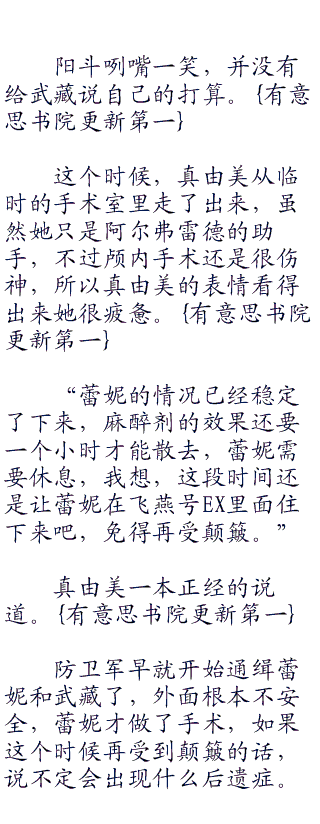 阳斗咧嘴一笑，并没有
给武藏说自己的打算。{有意
思书院更新第一}
这个时候，真由美从临
时的手术室里走了出来，虽
然她只是阿尔弗雷德的助
手，不过颅内手术还是很伤
神，所以真由美的表情看得
出来她很疲惫。{有意思书院
更新第一}
“蕾妮的情况已经稳定
了下来，麻醉剂的效果还要
一个小时才能散去，蕾妮需
要休息，我想，这段时间还
是让蕾妮在飞燕号EX里面住
下来吧，免得再受颠簸。”
真由美一本正经的说
道。{有意思书院更新第一}
防卫军早就开始通缉蕾
妮和武藏了，外面根本不安
全，蕾妮才做了手术，如果
这个时候再受到颠簸的话，
说不定会出现什么后遗症。